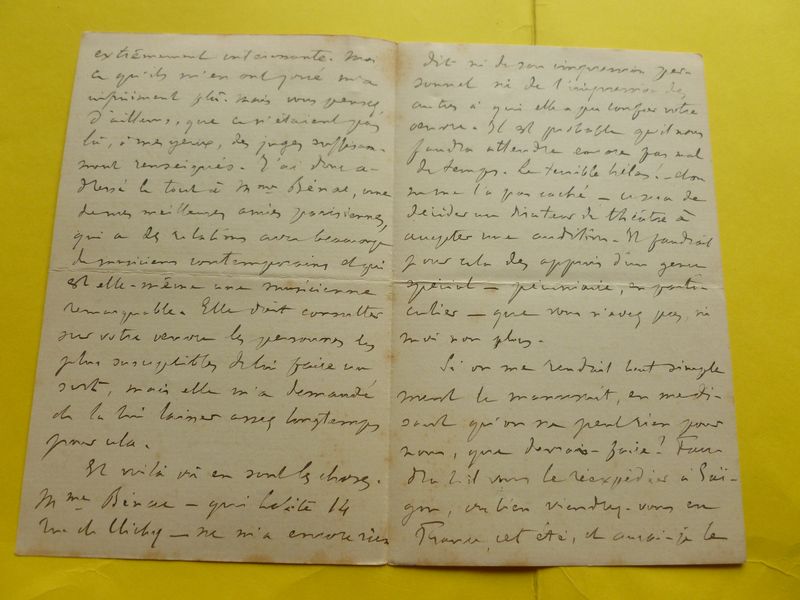 extrêmement intéressante. Mais
ce qu'ils m'en ont joué m'a
infiniment plû. Mais vous pensez
d'ailleurs, que ce n'étaient pas
là, à mes yeux, des juges suffisam-
ment renseignés. J'ai donc a-
dressé le tout à Mme Bénac, une
de mes meilleures amies parisiennes,
qui a des relations avec beaucoup
de musiciens contemporains et qui
est elle-même une musicienne
remarquable. Elle doit consulter
sur votre oeuvre les personnes les
plus susceptibles de lui faire un
sort, mais elle m'a demandé
de la lui laisser assez longtemps
pour cela.
Et voilà où en sont les choses.
Mme Bénac – qui habite 14
rue de Clichy – ne m'a encore rien
dit ni de son impression per-
sonnel ni de l'impression des
autres à qui elle a pu confier votre
oeuvre. Il est probable qu'il nous
faudra attendre encore pas mal
de temps. Le terrible hélas! – elle
ne me l'a pas caché – ce sera de
décider un directeur de théâtre à
accepter une audition. Il faudrait
pour cela des appuis d'un genre
spécial – pécuniaire, en parti-
culier – que vous n'avez pas, ni
moi non plus.
Si on me rendait tout simple
ment le manuscrit, en me di-
sant qu'on ne peut rien pour
nous, que devrais-faire? Fau-
dra-t-il vous le réexpédier à Saï-
gon, ou bien viendrez-vous en
France, cet été, et aurai-je le